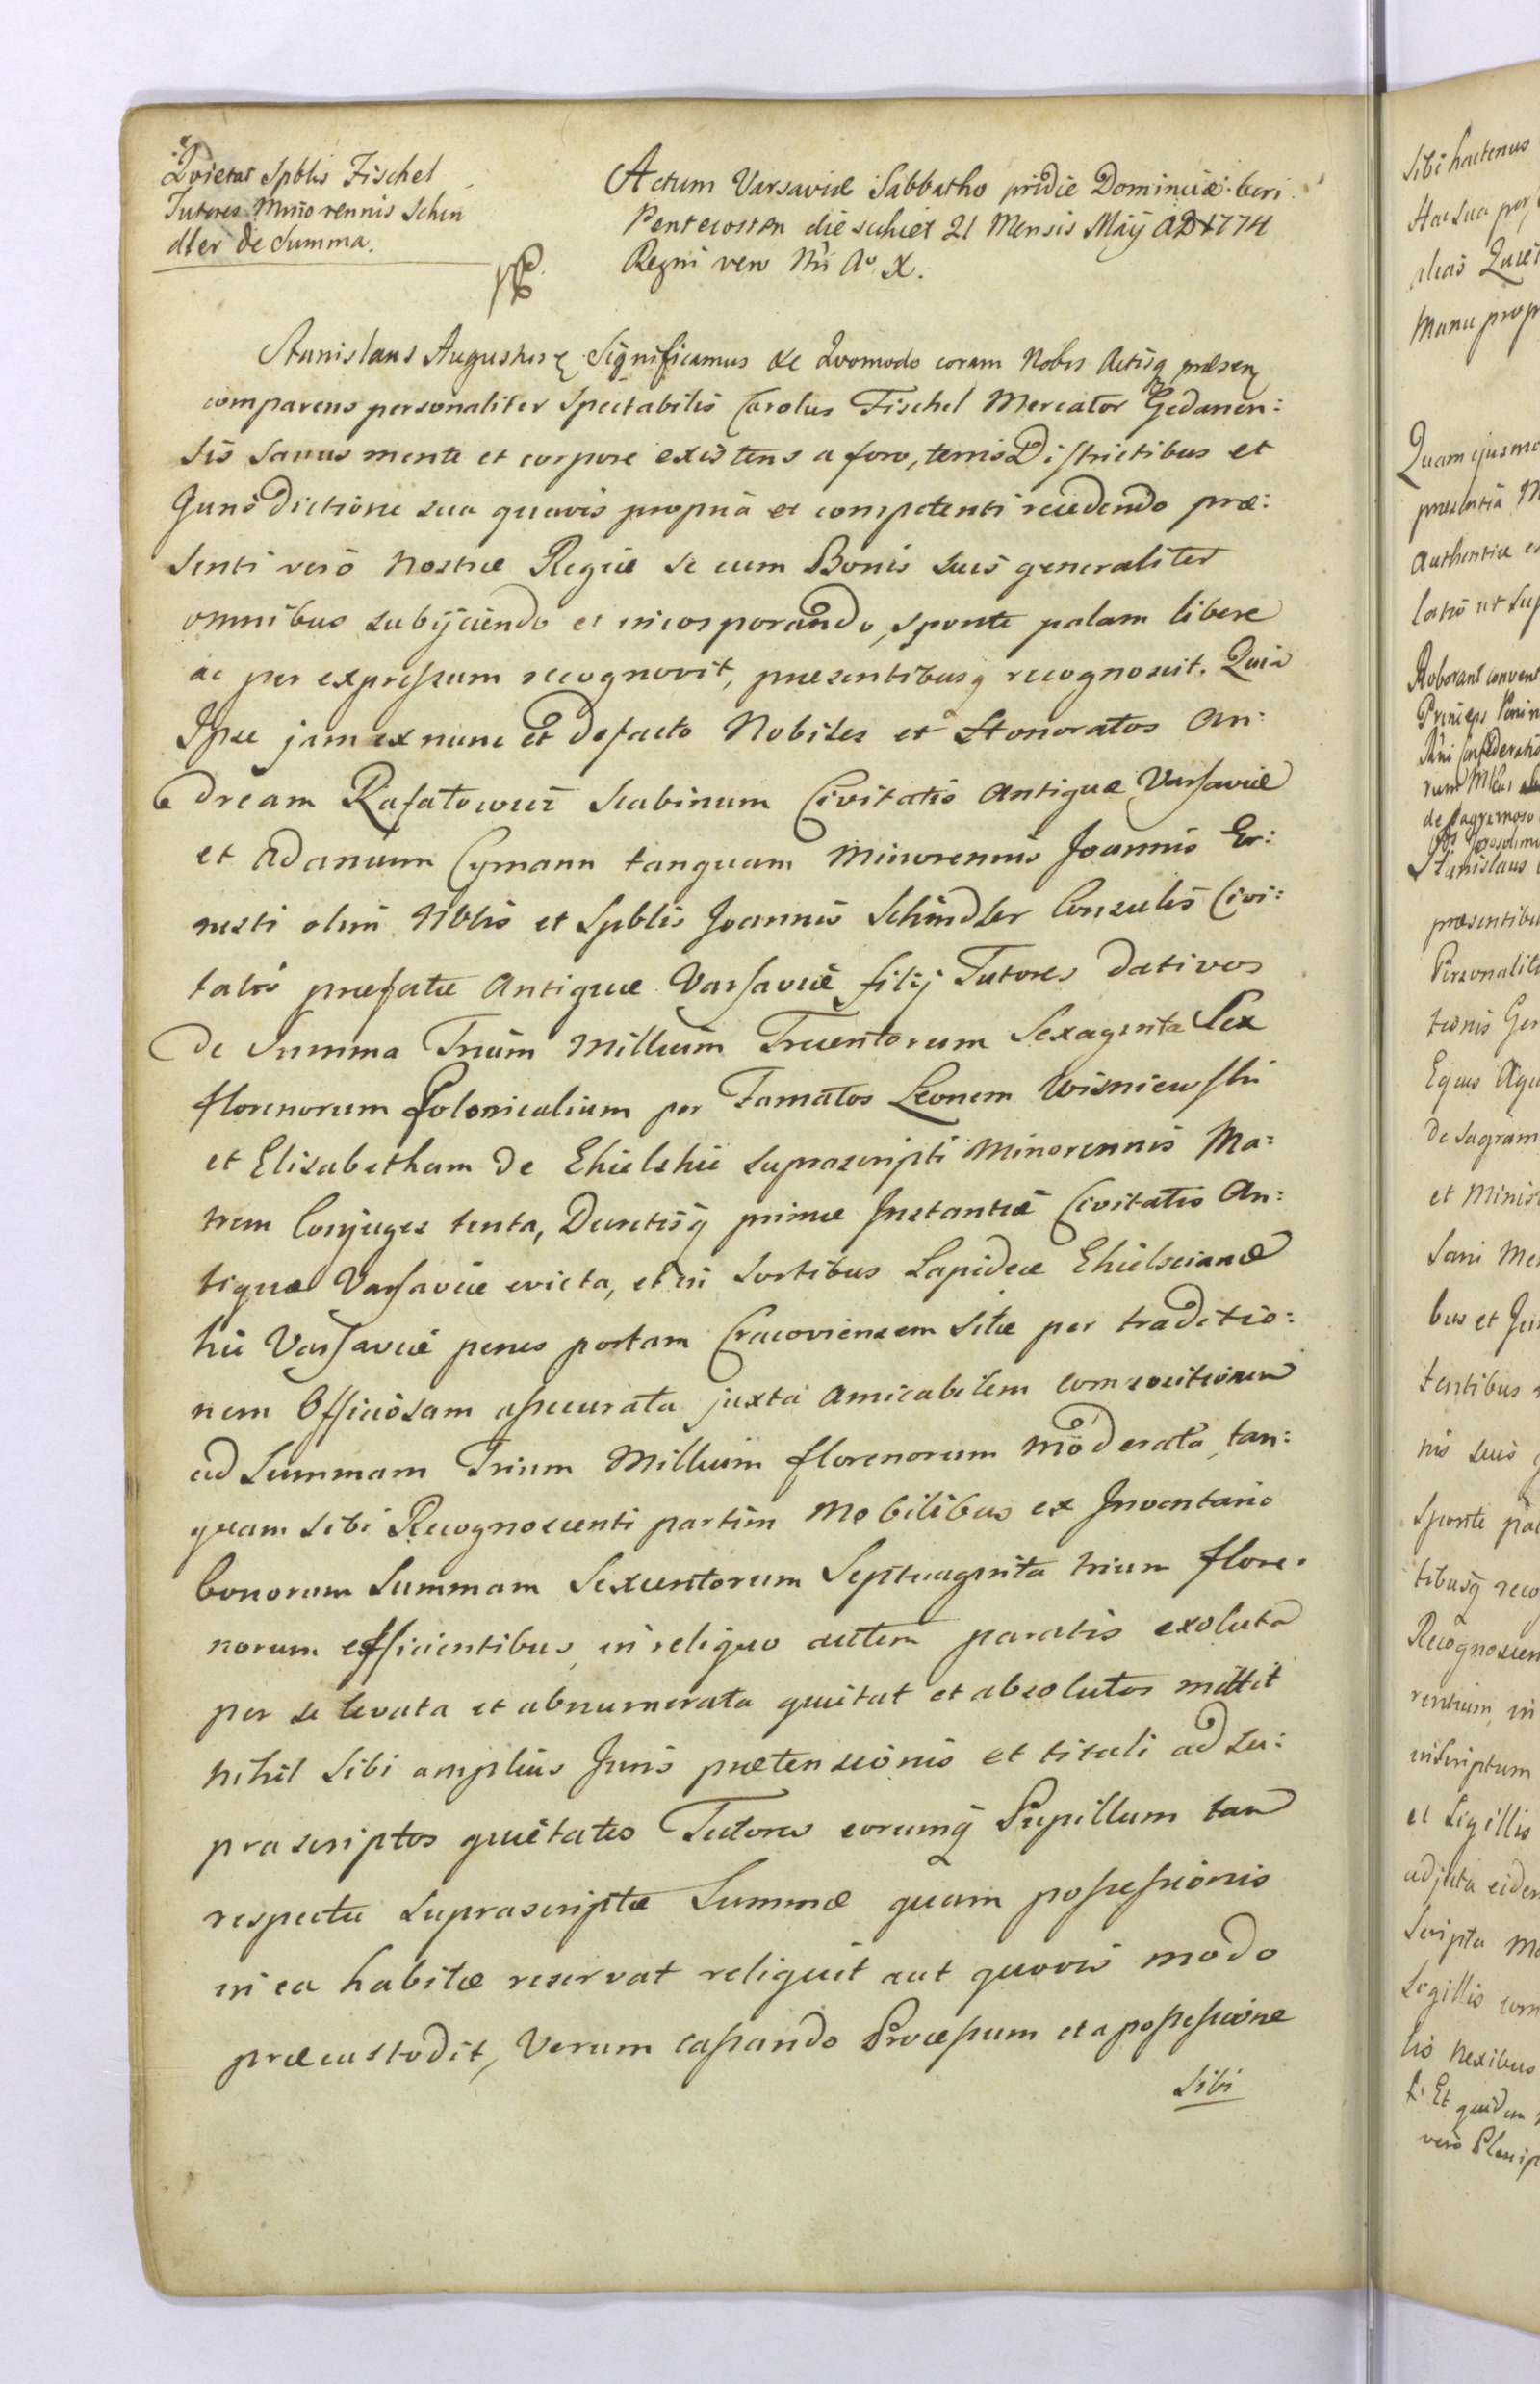 Qvietat Spblis Fischel
Tutores Minorennis Schin
dler de Summa.
Actum Varsaviæ Sabbatho pridie Dominicæ
Pentecosten die scilicet 21 Mensis Maÿ AD 1774
Regni vero Nri Ao X.
Stanislaus Augustus Significamus &c Quomodo coram Nobis Actisq præsen
comparens personaliter Spectabilis Carolus Fischel Mercator Gedanen:
sis sanus mente et corpore existens a foro, terris Districtibus et
Jurisdictione sua quavis propria et competenti recedendo præ:
senti vero Nostræ Regiæ se cum Bonis suis generaliter
omnibus subijciendo et incorporando, sponte palam libere
ac per expressum recognovit, præsentibusq recognoscit. Quia
Ipse jam ex nunc et defacto Nobiles et Honoratos An:
dream Rafałowicz Scabinum Civitatis Antiquæ Varsaviæ
et Adamum Cymann tanquam Minorennis Joannis Er:
nesti olim Nblis et Spblis Joannis Schindler Consulis Civi:
tatis præfatæ Antiquæ Varsaviæ filij Tutores dativos
de Summa Trium Millium Trecentorum Sexaginta Sex
florenorum Polonicalium per Famatos Leonem Wisniewski
et Elisabetham de Ehielskie suprascripti Minorennis Ma:
trem Conjuges tenta, Decretisq primæ Instantiæ Civitatis An:
tiquæ Varsaviæ evicta, et in Sortibus Lapideæ Ehielscianæ
hic Varsaviæ penes portam Cracoviensem sitæ per traditio:
nem Officiosam assecurata juxta amicabilem compositionem
ad Summam Trium Millium florenorum moderata, tan:
quam sibi Recognoscenti partim Mobilibus ex Inventario
bonorum Summam Sexcentorum Septuaginta trium flore:
norum efficientibus, in reliquo autem paratis exoluta
per se levata et abnumerata quietat et absolutos mittit
nihil sibi amplius Juris prætensionis et tituli ad su:
prascriptos quietatos Tutores eorumq Pupillum tam
respectu suprascriptæ Summæ quam possessionis
in ea habitæ reservat reliquit aut quovis modo
præcustodit, Verum cassando Processum et a possessione
sibi
sibi hactenus
Manu prop
præsentia
Authentica
Roborant
Princeps
Stanislaus
præsentibu
Personalit
tionis Ger
Equus Aqu
de Sagram
et Minist
Sani Me
bus et Jur
nis suis
Sponte pa
tibusq reco
Recognoscen
inscriptum
et Sigillis
Scripta
Sigillis
tis Nexibus
Et quidem
vero